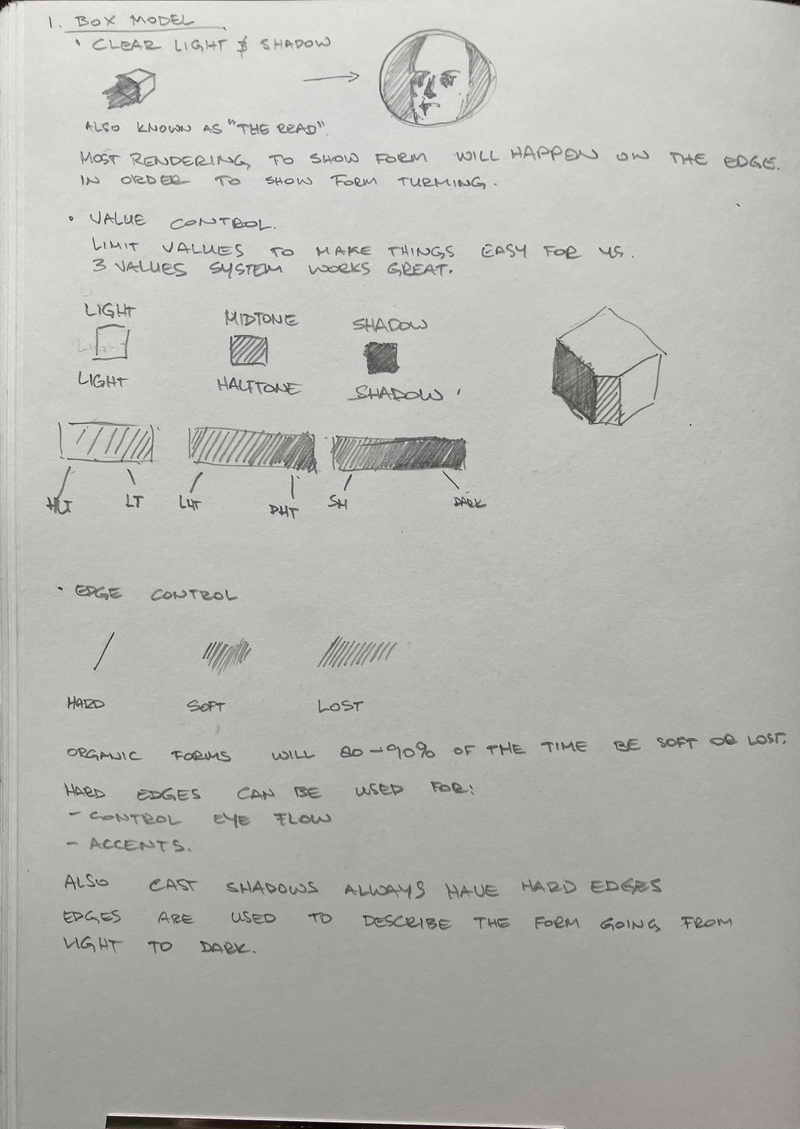 1. BOX MODEL
• CLEAR LIGHT & SHADOW
ALSO KNOWN AS "THE READ".
MOST RENDERING, TO SHOW FORM WILL HAPPEN ON THE EDGE.
IN ORDER TO SHOW FORM TURMING.
• VALUE CONTROL.
LIMIT VALUES TO MAKE THINGS EASY FOR US.
3 VALUES SYSTEM WORKS GREAT.
LIGHT MIDTONE SHADOW
LIGHT
LIGHT HALFTONE SHADOW
HLT LT LHT DHT SH DARK
• EDGE CONTROL
HARD SOFT LOST
ORGANIC FORMS WILL 80-90% OF THE TIME BE SOFT OR LOST.
HARD EDGES CAN BE USED FOR:
- CONTROL EYE FLOW
- ACCENTS.
ALSO CAST SHADOWS ALWAYS HAVE HARD EDGES
EDGES ARE USED TO DESCRIBE THE FORM GOING FROM
LIGHT TO DARK.